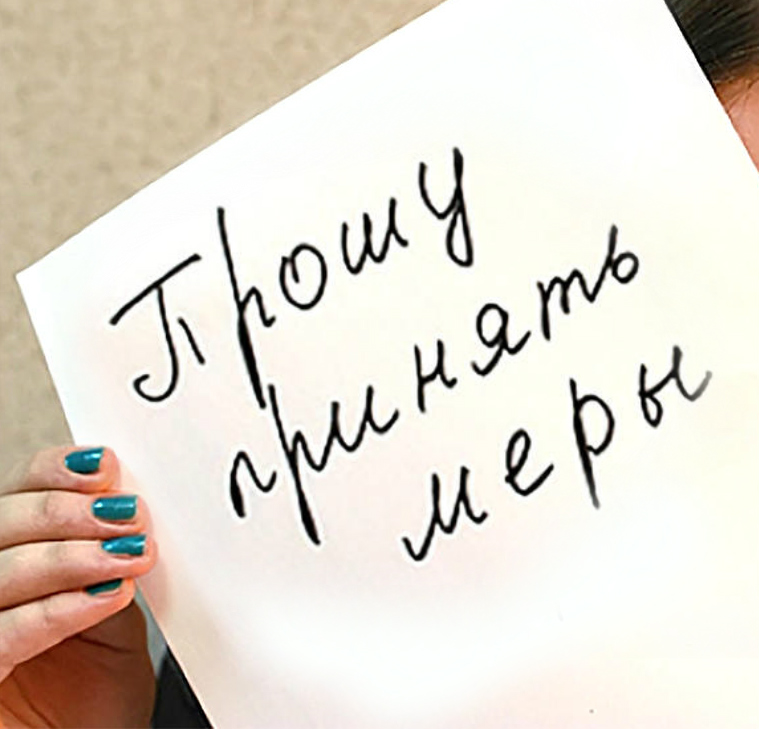 Прошу
принять
меры